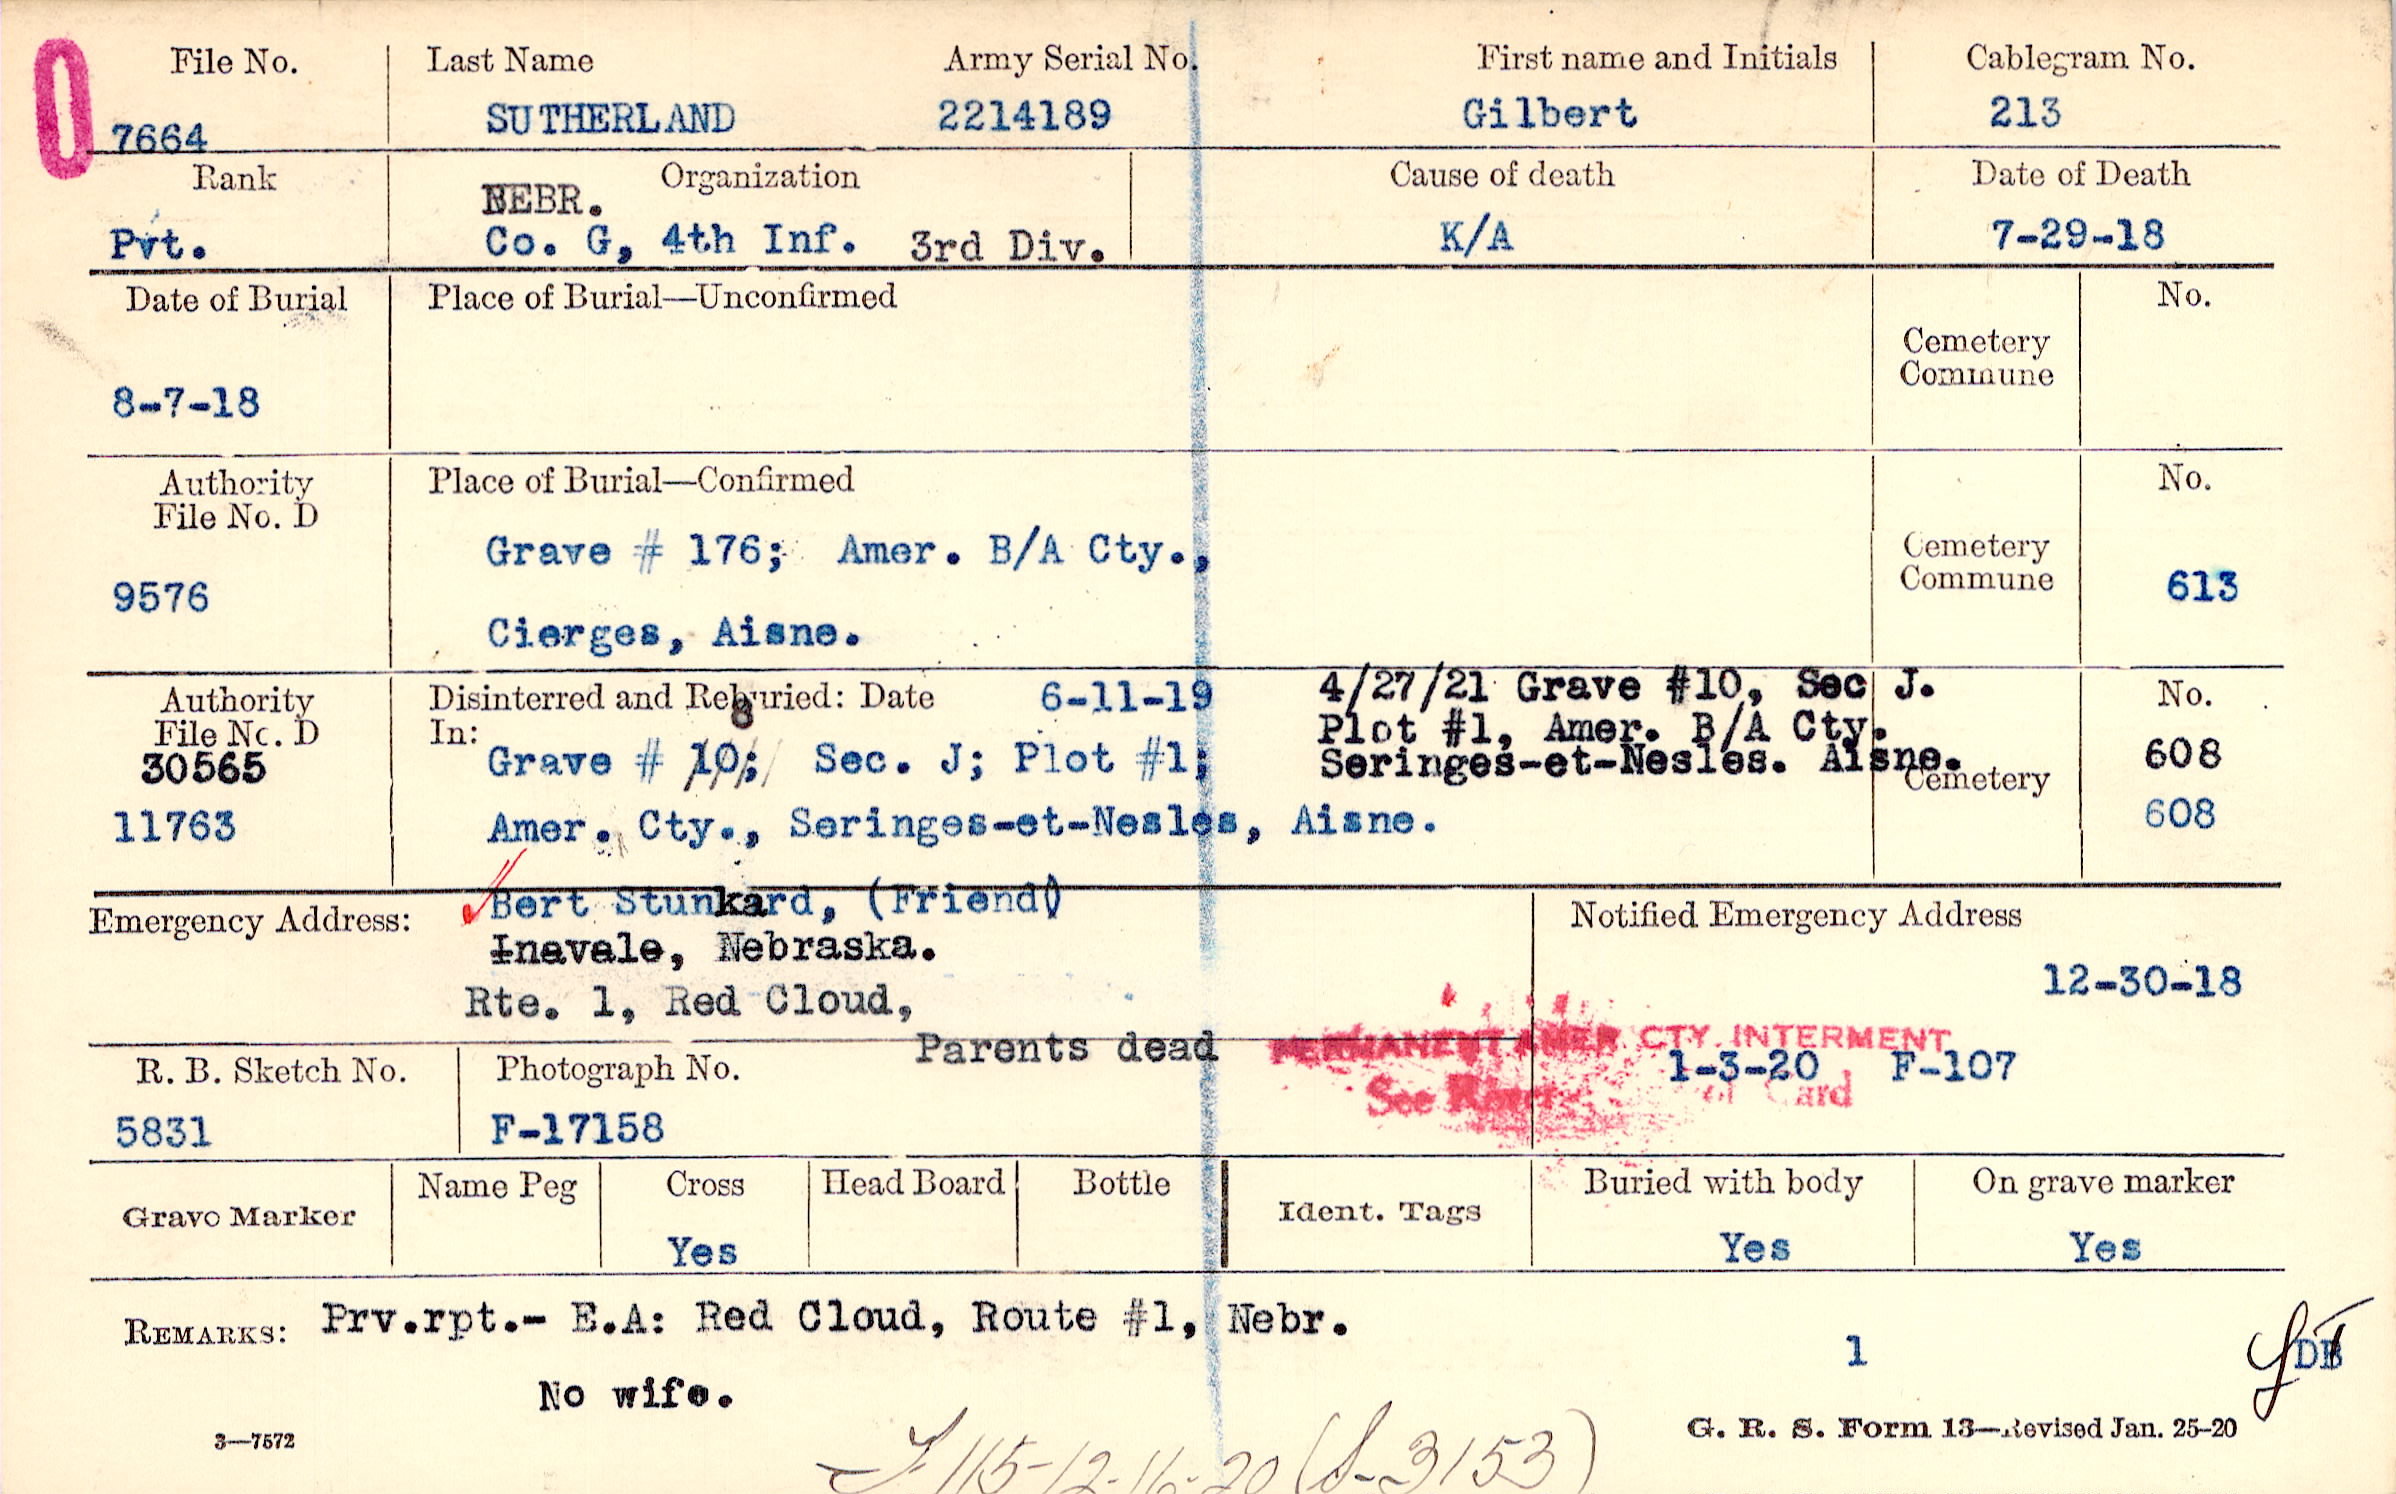 File No. Last Name Army Serial No. First name and Initials Cablegram No.
7664 SUTHERLAND 2214189 Gilbert 213
Rank Organization Cause of death Date of Death
NEBR.
Pvt. Co. G, 4th Inf. 3rd Div. K/A 7-29-18
Date of Burial Place of Burial—Unconfirmed No.
Cemetery
Commune
8-7-18
Authority Place of Burial—Confirmed No.
File No. D
Grave # 176; Amer. B/A Cty., Cemetery
9576 Commune 613
Cierges, Aisne.
Authority Disinterred and Reburied: Date 6-11-19 4/27/21 Grave #10, Sec J. No.
File No. D In: 8 Plot #1, Amer. B/A Cty.
30565 Grave # 10; Sec. J; Plot #1; Seringes-et-Nesles. Aisne. 608
Cemetery
11763 Amer. Cty., Seringes-et-Nesles, Aisne. 608
Emergency Address: Bert Stunkard, (Friend) Notified Emergency Address
Inavale, Nebraska.
12-30-18
Rte. 1, Red Cloud,
Parents dead PERMANENT AMER. CTY. INTERMENT
1-3-20 F-107
See of Card
R. B. Sketch No. Photograph No.
5831 F-17158
Grave Marker Name Peg Cross Head Board Bottle Ident. Tags Buried with body On grave marker
Yes Yes Yes
REMARKS: Prv.rpt.- E.A: Red Cloud, Route #1, Nebr.
1
No wife.
3—7572 G. R. S. Form 13—Revised Jan. 25-20
115-12-16-20 (S-3153)